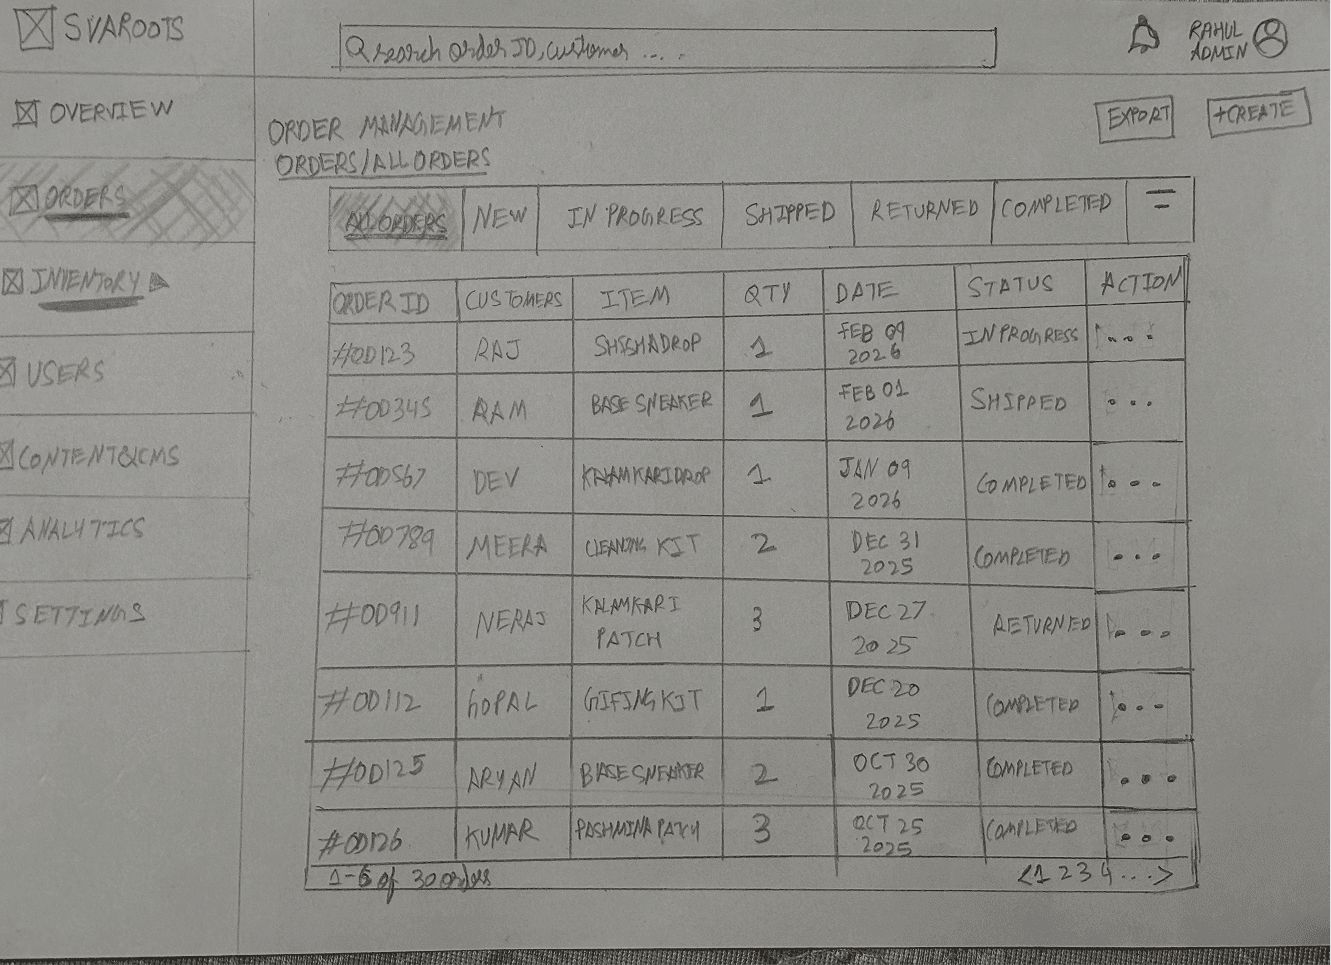 SVAROOTS
search order ID, customer ....
RAHUL
ADMIN
OVERVIEW
ORDERS
INVENTORY
USERS
CONTENT&CMS
ANALYTICS
SETTINGS
ORDER MANAGEMENT
ORDERS/ALL ORDERS
EXPORT
+CREATE
ALL ORDERS NEW IN PROGRESS SHIPPED RETURNED COMPLETED
ORDER ID CUSTOMERS ITEM QTY DATE STATUS ACTION
#OD123 RAJ SHISHADROP 1 FEB 09 IN PROGRESS ...
2026
#OD345 RAM BASE SNEAKER 1 FEB 01 SHIPPED ...
2026
#OD567 DEV KALAMKARI DROP 1 JAN 09 COMPLETED ...
2026
#OD789 MEERA CLEANING KIT 2 DEC 31 COMPLETED ...
2025
#OD911 NERAJ KALAMKARI 3 DEC 27 RETURNED ...
PATCH 2025
#OD112 GOPAL GIFING KIT 1 DEC 20 COMPLETED ...
2025
#OD125 ARYAN BASE SNEAKER 2 OCT 30 COMPLETED ...
2025
#OD126 KUMAR PASHMINA PATCH 3 OCT 25 COMPLETED ...
2025
1-6 of 30 orders <1 2 3 4 ...>